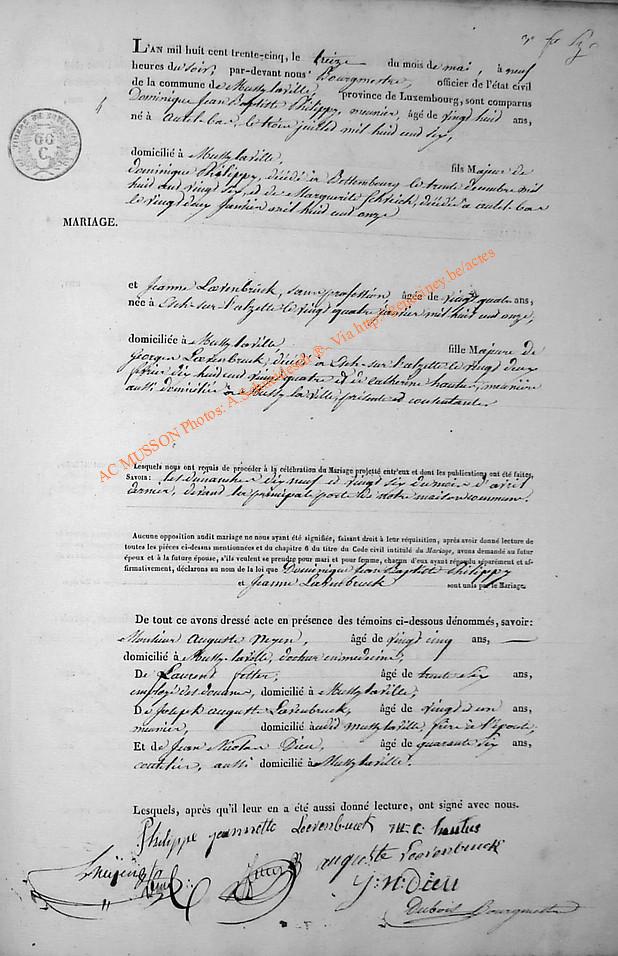 L'AN mil huit cent trente-cinq, le treize du mois de mai, à neuf
heures du soir, par-devant nous Bourgmestre, officier de l'état civil
de la commune de Mussy la ville, province de Luxembourg, sont comparus
Dominique Jean Baptiste Philippy, meunier, âgé de vingt huit ans,
né à Autel-bas, le trois juillet mil huit cent six,
domicilié à Mussy la ville, fils Majeur de
dominique Philippy, décédé à Bettembourg le trente decembre mil
huit cent vingt six, et de Marguerite Schleich, décédée à autel-bas
le vingt deux Janvier mil huit cent onze
MARIAGE.
et Jeanne Laevenbruck, sans profession, âgée de vingt quatre ans,
née à Esch-sur-l'alzette le vingt quatre janvier mil huit cent onze,
domiciliée à Mussy la ville, fille Majeure de
georges Laevenbruck, décédé à Esch-sur-l'alzette le vingt deux
février dix huit cent vingt quatre et de catherine hautus, meunière
aussi domiciliée à Mussy la ville, présente et consentante
AC MUSSON Photos: A.Schleich ®- Via http://
.be/actes
Lesquels nous ont requis de procéder à la célébration du Mariage projetté entr'eux et dont les publications ont été faites,
SAVOIR: les dimanches dix neuf et vingt six du mois d'avril
dernier, devant la principale porte de notre maison commune.
Aucune opposition audit mariage ne nous ayant été signifiée, faisant droit à leur réquisition, après avoir donné lecture de
toutes les pièces ci-dessus mentionnées et du chapitre 6 du titre du Code civil intitulé du Mariage, avons demandé au futur
époux et à la future épouse, s'ils veulent se prendre pour mari et pour femme, chacun d'eux ayant répondu séparément et af-
firmativement, déclarons au nom de la loi que Dominique Jean Baptiste Philippy
et Jeanne Laevenbruck sont unis par le Mariage.
De tout ce avons dressé acte en présence des témoins ci-dessous dénommés, savoir:
Monsieur Auguste Neyen, âgé de vingt cinq ans,
domicilié à Mussy la ville, docteur en medecine,
De Laurent âgé de trente six ans,
employé des douane, domicilié à Mussy la ville,
De Joseph auguste Laevenbruck, âgé de vingt et un ans,
meunier, domicilié audit mussy la ville, frère à l'épouse,
Et de Jean Nicolas Dieu, âgé de quarante six ans,
aussi domicilié à Mussy la ville.
Lesquels, après qu'il leur en a été aussi donné lecture, ont signé avec nous.
Philippe jeannette Loevenbruck M. C. hautus
auguste Loevenbruck
J: N: Dieu
Dubois Bourgmestre